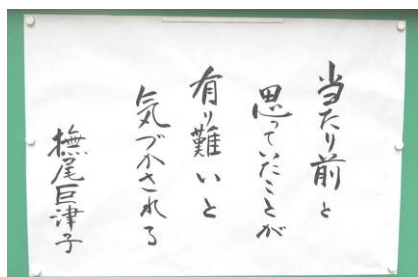 当たり前と
思っていたことが
有り難いと
気づかされる
撫尾巨津子